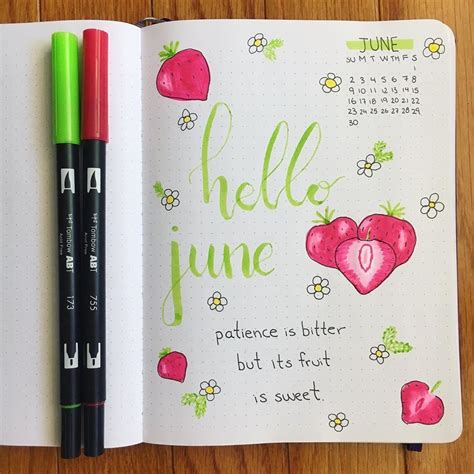 JUNE
SU M T W TH F S
1
2 3 4 5 6 7 8
9 10 11 12 13 14 15
16 17 18 19 20 21 22
23 24 25 26 27 28 29
30
hello
june
patience is bitter
but its fruit
is sweet.
Tombow ABT
173
Tombow ABT
755